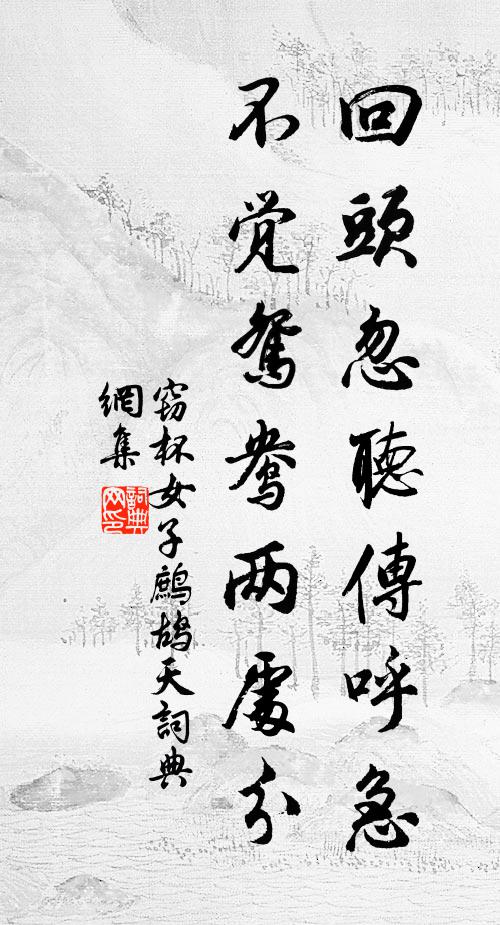 回頭忽聽傳呼急
不覚鴛鴦兩處分
窃杯女子鷓鴣天詞典
網集
詞典
网印